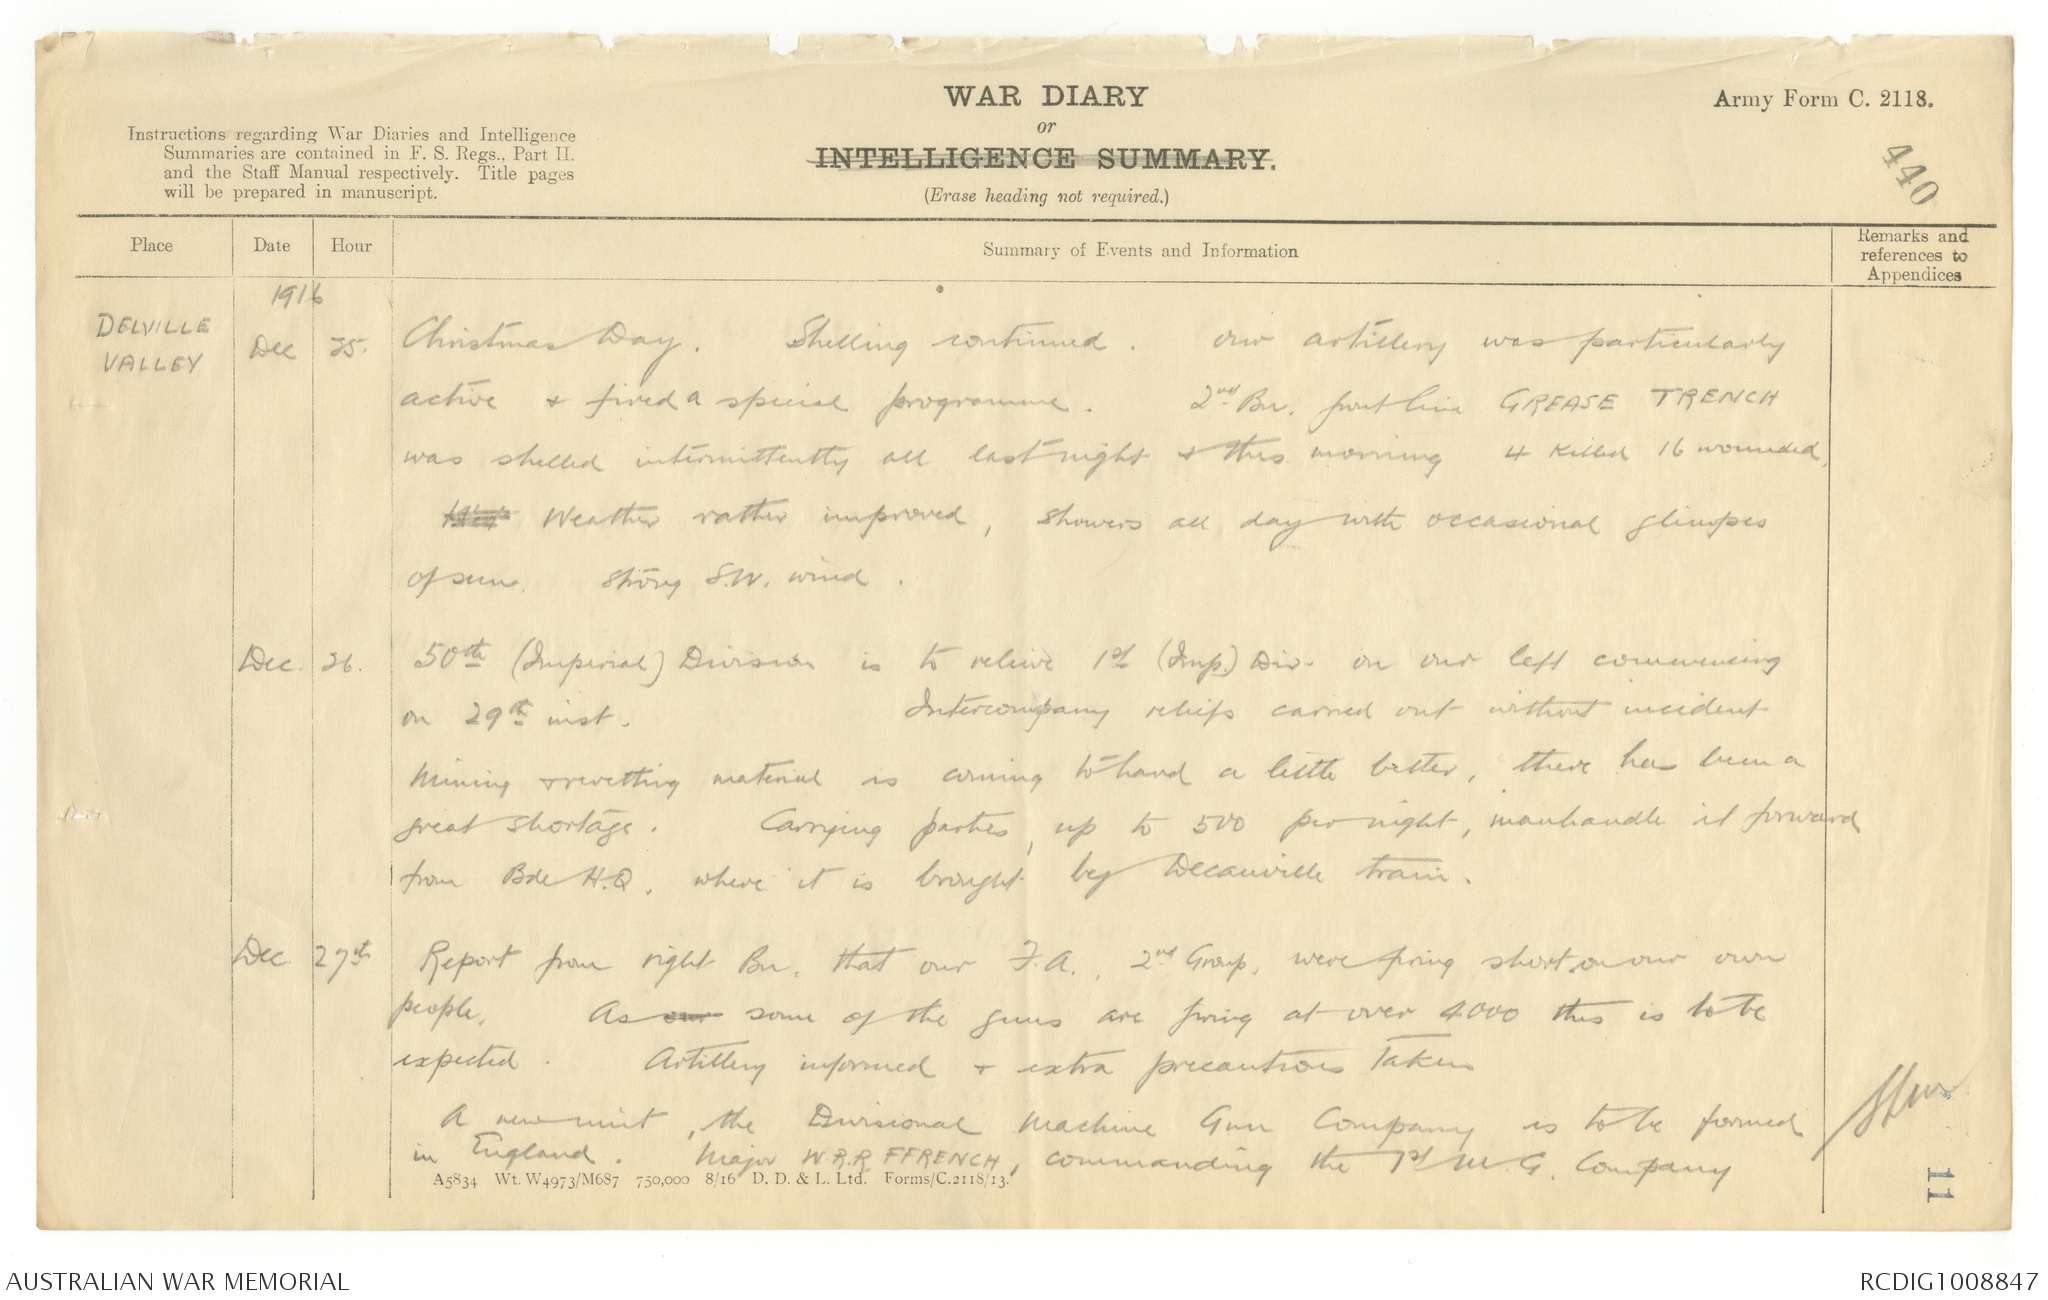 WAR DIARY
or
INTELLIGENCE SUMMARY.
(Erase heading not required.)
Army Form C. 2118.
440
Instructions regarding War Diaries and Intelligence
Summaries are contained in F. S. Regs., Part II.
and the Staff Manual respectively. Title pages
will be prepared in manuscript.
Place Date Hour Summary of Events and Information Remarks and references to Appendices
1916
DELVILLE VALLEY Dec 25. Christmas Day. Shelling continued. our artillery was particularly
active & fired a special programme. 2nd Bn. front line GREASE TRENCH
was shelled intermittently all last night & this morning 4 killed 16 wounded.
Weather rather improved, showers all day with occasional glimpses
of sun. Strong S.W. wind.
Dec. 26. 50th (Imperial) Division is to relieve 1st (Imp.) Div. on our left commencing
on 29th inst. Intercompany reliefs carried out without incident
Mining & revetting material is coming to hand a little better, there has been a
great shortage. Carrying parties, up to 500 per night, manhandle it forward
from Bde H.Q. where it is brought by Decauville train.
Dec. 27th Report from right Bn. that our F.A., 2nd Group, were firing short on our own
people. As our some of the guns are firing at over 4000 this is to be
expected. Artillery informed & extra precautions taken
A new unit, the Divisional Machine Gun Company is to be formed
in England. Major W.R.R. FFRENCH, commanding the 1st M.G. Company
A5834 Wt. W4973/M687 750,000 8/16 D. D. & L. Ltd. Forms/C.2118/13.
11
AUSTRALIAN WAR MEMORIAL
RCDIG1008847